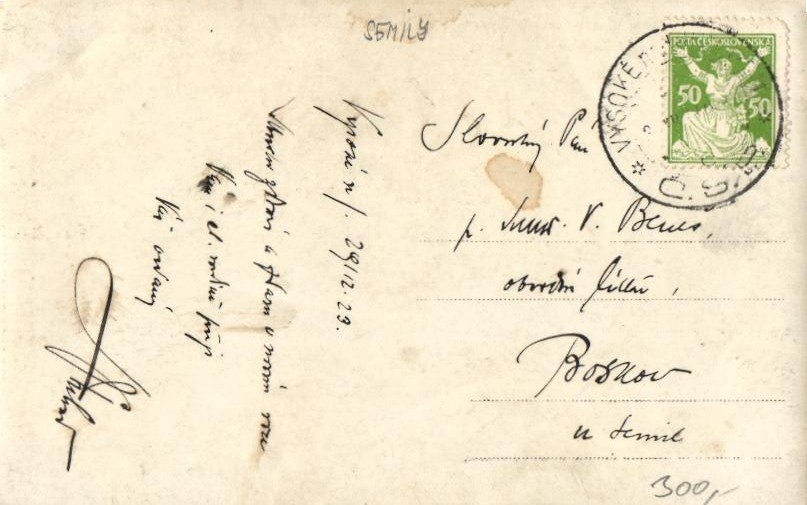 SEMILY
POŠTA ČESKOSLOVENSKÁ
50 50
* VYSOKÉ
Č.S.
Slovutný Pan
p. V. Beneš,
obvodní
Boskov
u Semil
Vysoké n/J. 29/12. 23.
zdraví a v novém roce
Vám i ct. rodině
Váš oddaný
300,-